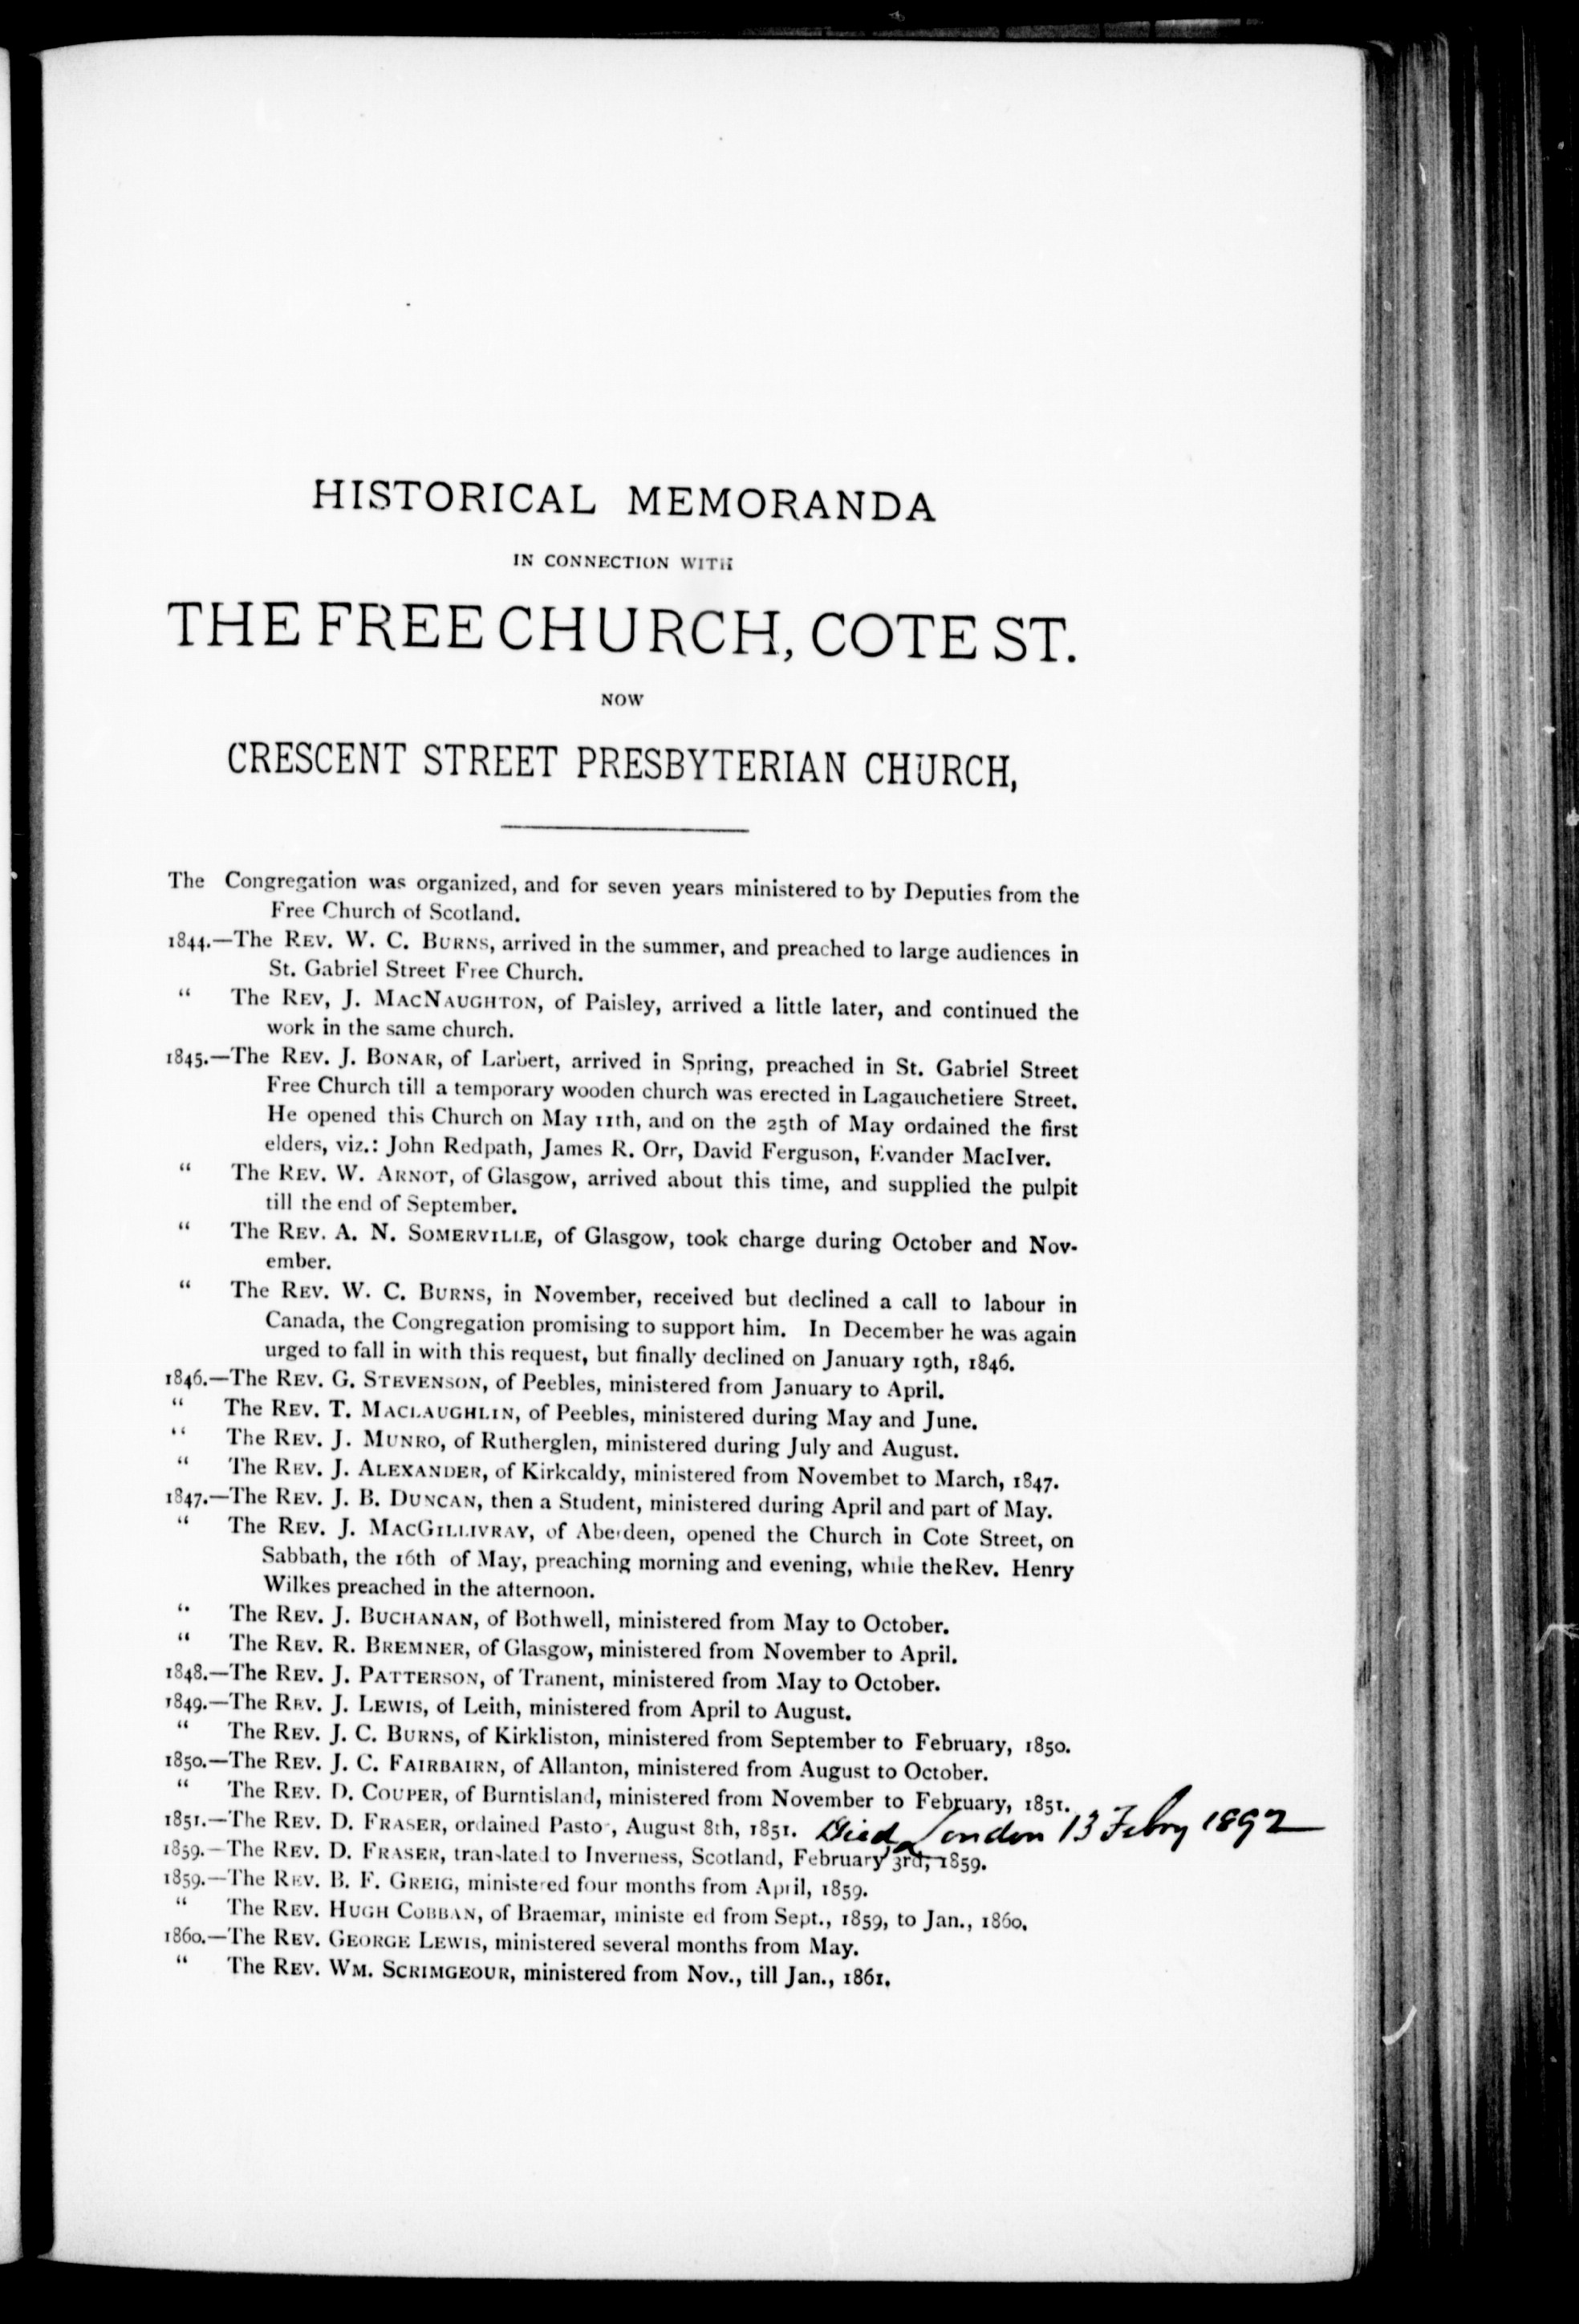 HISTORICAL MEMORANDA
IN CONNECTION WITH
THE FREE CHURCH, COTE ST.
NOW
CRESCENT STREET PRESBYTERIAN CHURCH,
The Congregation was organized, and for seven years ministered to by Deputies from the
Free Church of Scotland.
1844.—The REV. W. C. BURNS, arrived in the summer, and preached to large audiences in
St. Gabriel Street Free Church.
“ The REV, J. MACNAUGHTON, of Paisley, arrived a little later, and continued the
work in the same church.
1845.—The REV. J. BONAR, of Larbert, arrived in Spring, preached in St. Gabriel Street
Free Church till a temporary wooden church was erected in Lagauchetiere Street.
He opened this Church on May 11th, and on the 25th of May ordained the first
elders, viz.: John Redpath, James R. Orr, David Ferguson, Evander MacIver.
“ The REV. W. ARNOT, of Glasgow, arrived about this time, and supplied the pulpit
till the end of September.
“ The REV. A. N. SOMERVILLE, of Glasgow, took charge during October and Nov-
ember.
“ The REV. W. C. BURNS, in November, received but declined a call to labour in
Canada, the Congregation promising to support him. In December he was again
urged to fall in with this request, but finally declined on January 19th, 1846.
1846.—The REV. G. STEVENSON, of Peebles, ministered from January to April.
“ The REV. T. MACLAUGHLIN, of Peebles, ministered during May and June.
“ The REV. J. MUNRO, of Rutherglen, ministered during July and August.
“ The REV. J. ALEXANDER, of Kirkcaldy, ministered from Novembet to March, 1847.
1847.—The REV. J. B. DUNCAN, then a Student, ministered during April and part of May.
“ The REV. J. MACGILLIVRAY, of Aberdeen, opened the Church in Cote Street, on
Sabbath, the 16th of May, preaching morning and evening, while theRev. Henry
Wilkes preached in the afternoon.
“ The REV. J. BUCHANAN, of Bothwell, ministered from May to October.
“ The REV. R. BREMNER, of Glasgow, ministered from November to April.
1848.—The REV. J. PATTERSON, of Tranent, ministered from May to October.
1849.—The REV. J. LEWIS, of Leith, ministered from April to August.
“ The REV. J. C. BURNS, of Kirkliston, ministered from September to February, 1850.
1850.—The REV. J. C. FAIRBAIRN, of Allanton, ministered from August to October.
“ The REV. D. COUPER, of Burntisland, ministered from November to February, 1851.
1851.—The REV. D. FRASER, ordained Pastor, August 8th, 1851. Died London 13 Febry 1892
1859.—The REV. D. FRASER, translated to Inverness, Scotland, February 3rd, 1859.
1859.—The REV. B. F. GREIG, ministered four months from April, 1859.
“ The REV. HUGH COBBAN, of Braemar, ministe ed from Sept., 1859, to Jan., 1860.
1860.—The REV. GEORGE LEWIS, ministered several months from May.
“ The REV. WM. SCRIMGEOUR, ministered from Nov., till Jan., 1861.